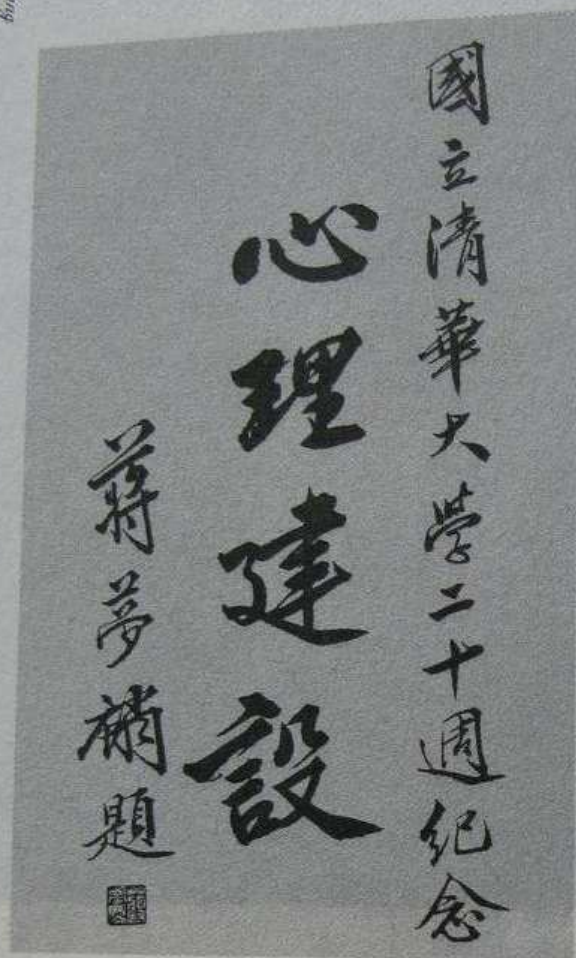 國立清華大學二十週紀念
心理建設
蔣夢麟題